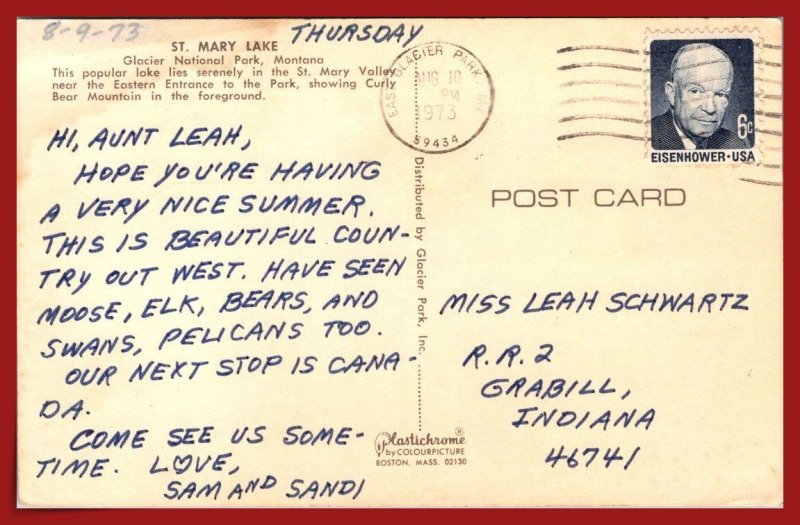 8-9-73
THURSDAY
ST. MARY LAKE
Glacier National Park, Montana
This popular lake lies serenely in the St. Mary Valley
near the Eastern Entrance to the Park, showing Curly
Bear Mountain in the foreground.
HI, AUNT LEAH,
HOPE YOU'RE HAVING
A VERY NICE SUMMER.
THIS IS BEAUTIFUL COUN-
TRY OUT WEST. HAVE SEEN
MOOSE, ELK, BEARS, AND
SWANS, PELICANS TOO.
OUR NEXT STOP IS CANA-
DA.
COME SEE US SOME-
TIME. LOVE,
SAM AND SANDI
EAST GLACIER PARK MT
AUG 10
PM
1973
59434
6c
EISENHOWER·USA
Distributed by Glacier Park, Inc.
POST CARD
MISS LEAH SCHWARTZ
R.R. 2
GRABILL,
INDIANA
46741
Plastichrome®
by COLOURPICTURE
BOSTON, MASS. 02130